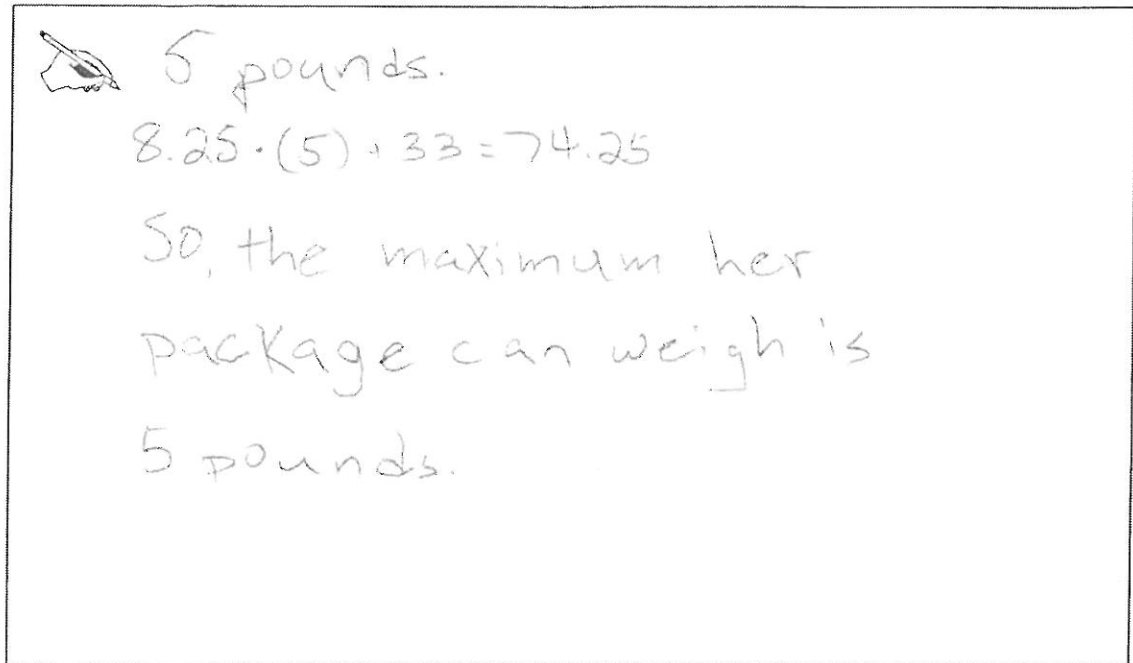 5 pounds.
8.25·(5)+33=74.25
So, the maximum her
package can weigh is
5 pounds.